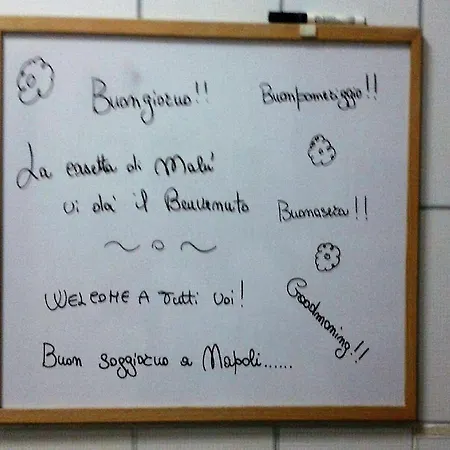 Buongiorno!!
Buonpomeriggio!!
La casetta di Malù
vi dà il Benvenuto
Buonasera!!
WELCOME A Tutti Voi!
Goodmoning!!
Buon soggiorno a Napoli......